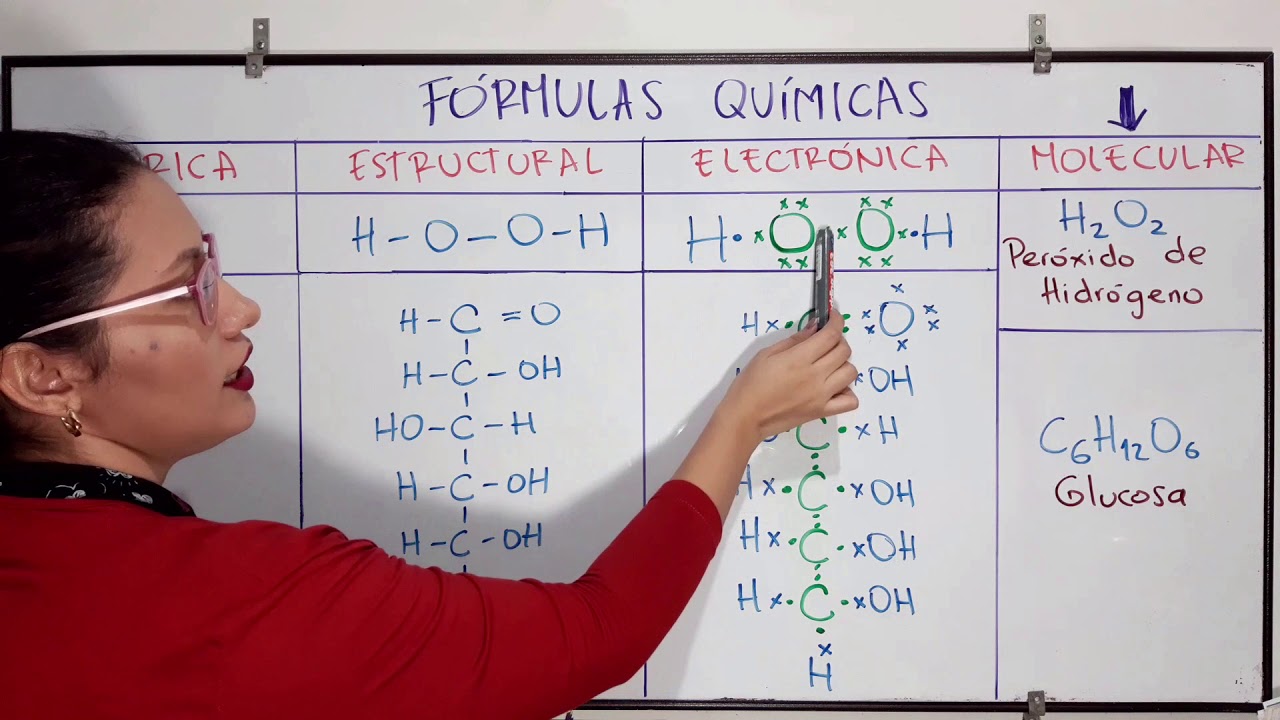 FÓRMULAS QUÍMICAS
RICA ESTRUCTURAL ELECTRÓNICA MOLECULAR
H – O – O – H
H • x O x O x • H
H2O2
Peróxido de
Hidrógeno
H – C = O
H – C – OH
HO – C – H
H – C – OH
H – C – OH
H x • : O
x OH
C • x H
H x • C • x OH
H x • C • x OH
H x • C • x OH
H
C6H12O6
Glucosa